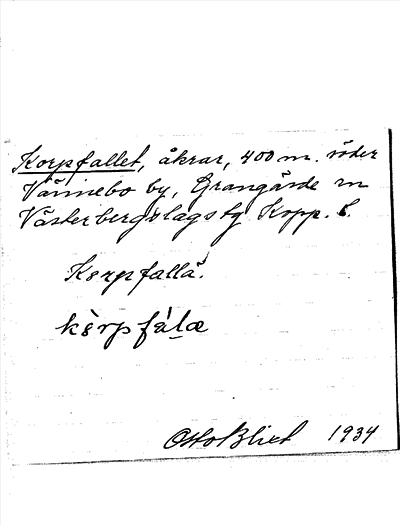 Korpfallet, åkrar, 400 m. söder
Vännebo by, Grangärde sn
Västerbergslags tg Kopp. l.
Korpfallä.
kòrpfálæ
Otto Blixt 1934